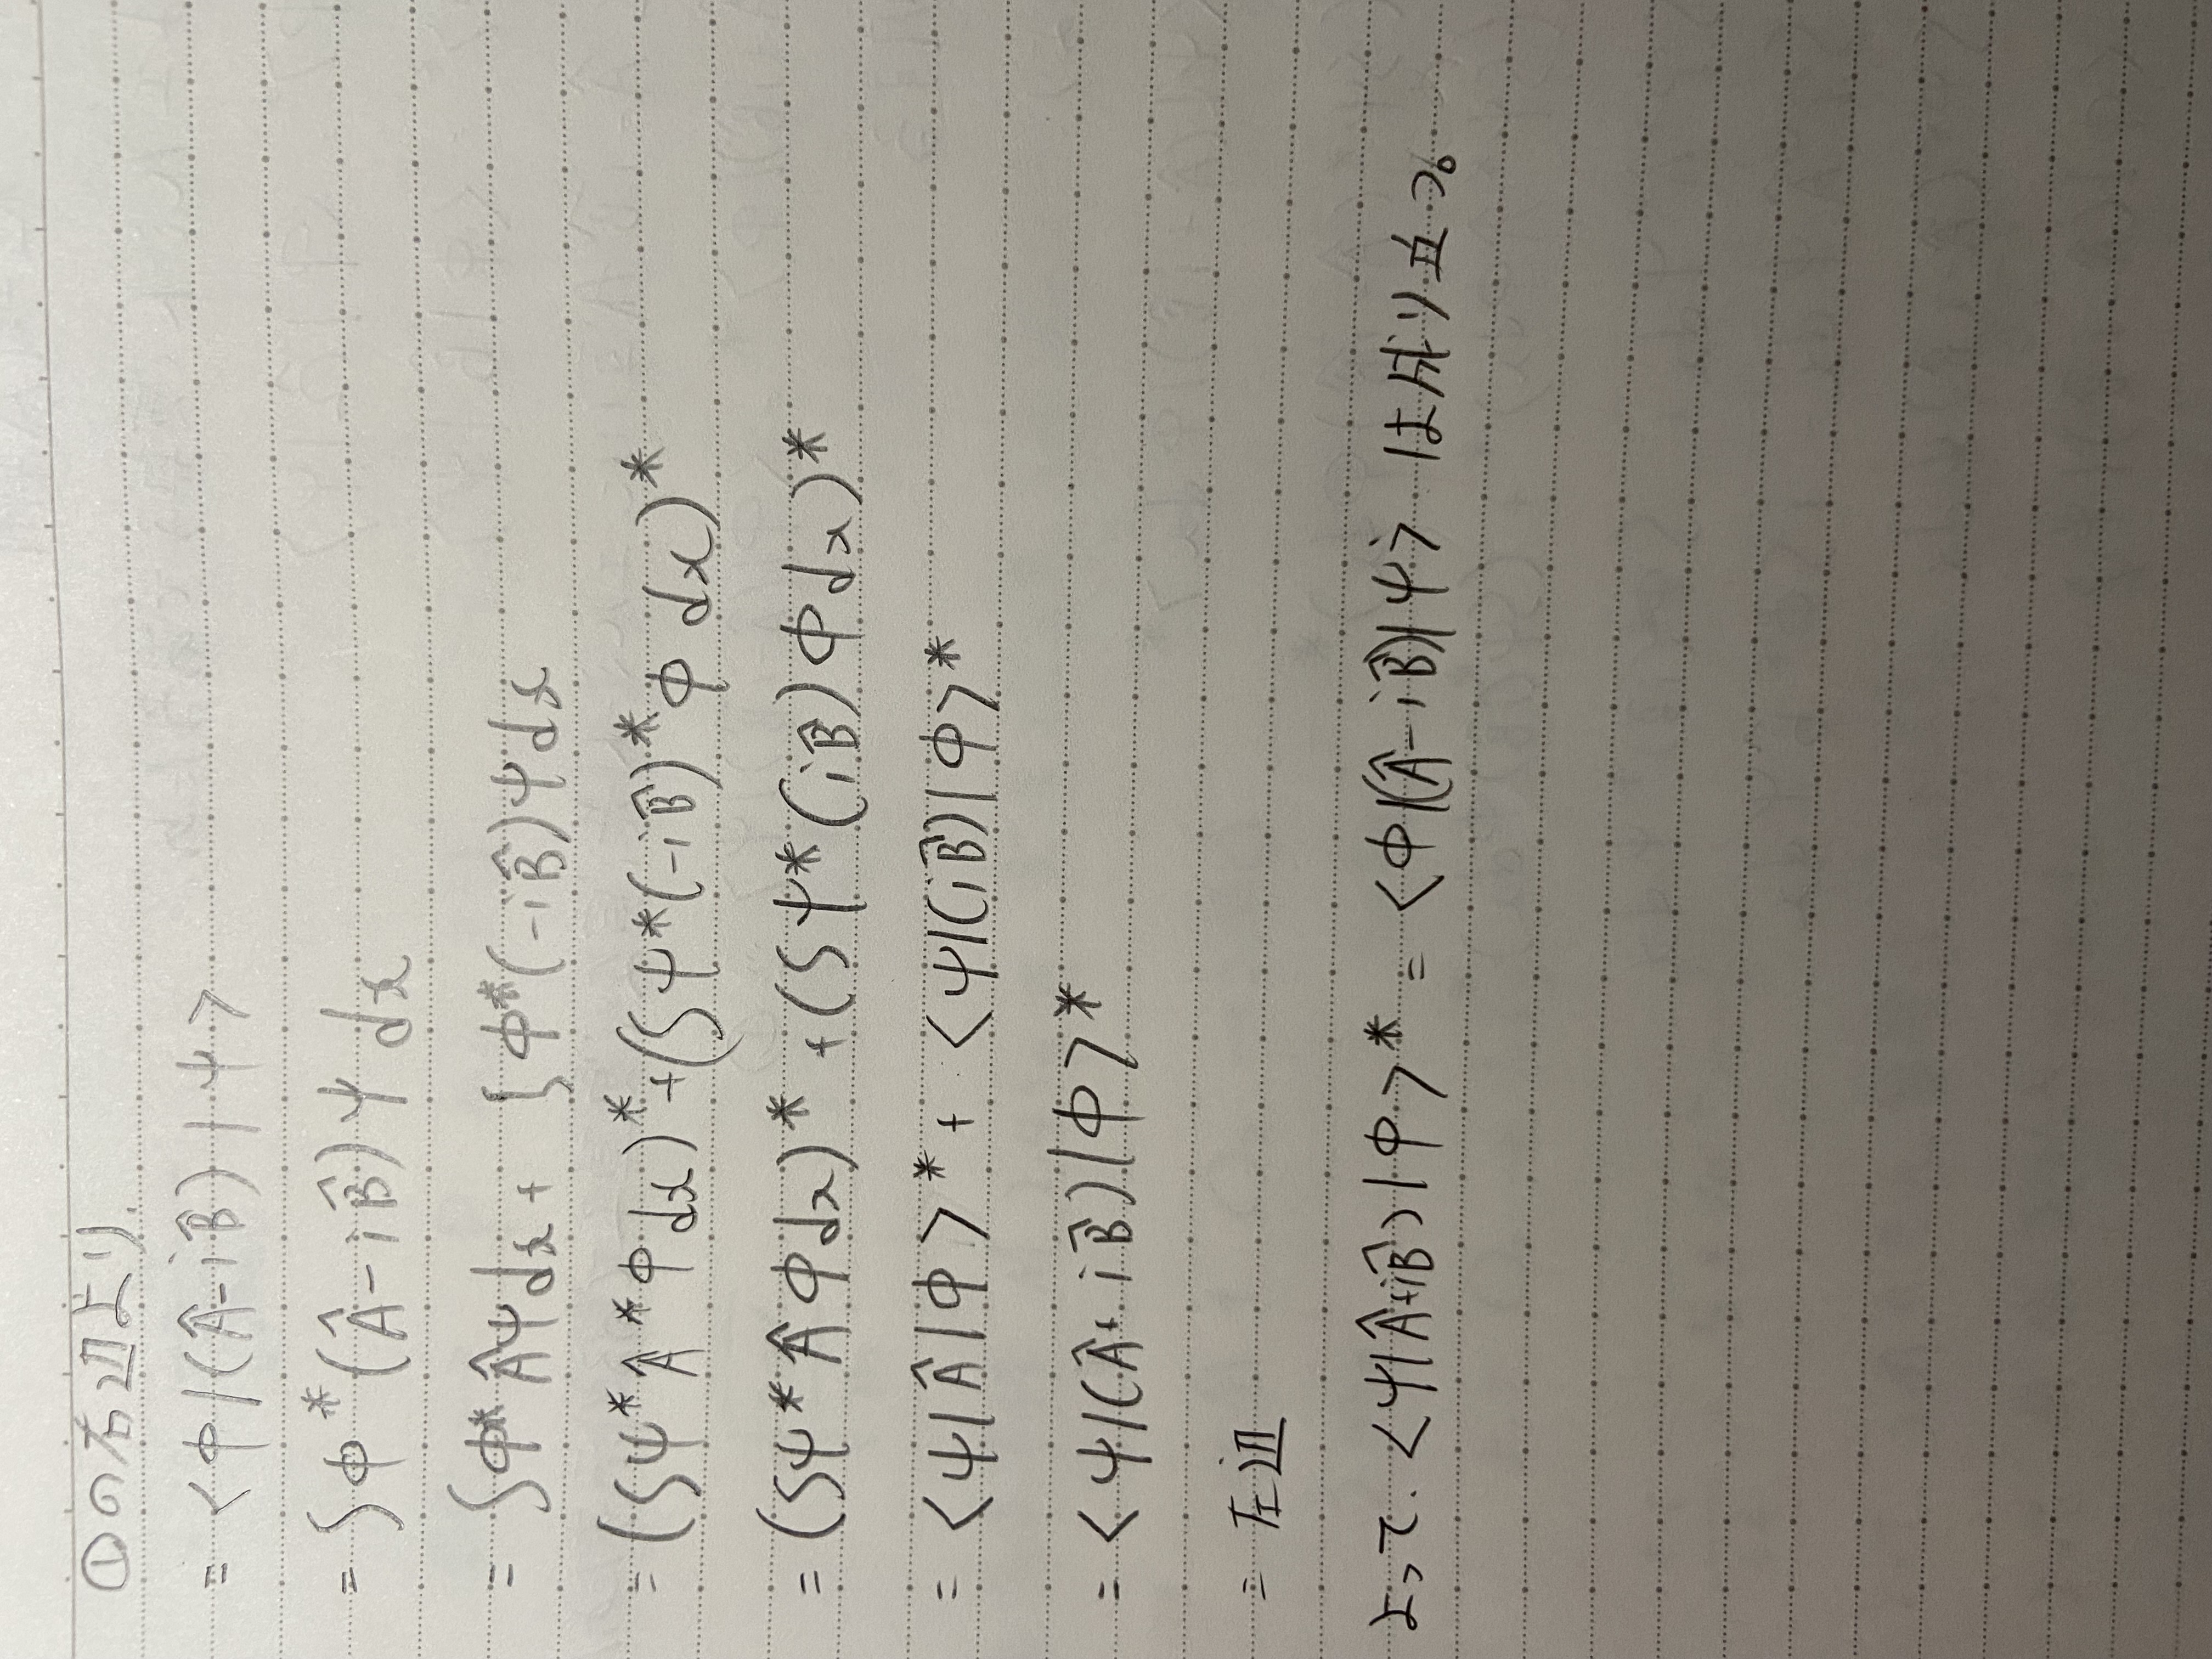 ①の右辺より、
= <φ|(Â-iB̂)|ψ>
= ∫φ*(Â-iB̂)ψdx
= ∫φ*Âψdx + ∫φ*(-iB̂)ψdx
= (∫ψ*Â*φdx)* + (∫ψ*(-iB̂)*φdx)*
= (∫ψ*Âφdx)* + (∫ψ*(iB̂)φdx)*
= <ψ|Â|φ>* + <ψ|(iB̂)|φ>*
= <ψ|(Â+iB̂)|φ>*
= 左辺
よって、<ψ|Â+iB̂)|φ>* = <φ|(Â-iB̂)|ψ> は成り立つ。